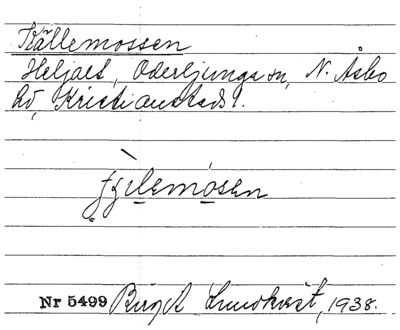 Källemossen
Heljalt, Oderljunga sn, N. Åsbo
hd, Kristianstads l.
Nr 5499 Birgit Lundkvist, 1938.